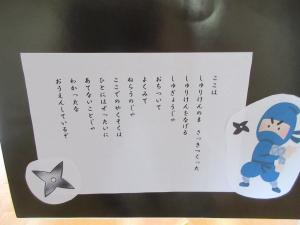 ここは
しゅりけんのま さっきつくった
しゅりけんをなげる
しゅぎょうじゃ
おちついて
よくみて
ねらうのじゃ
ここでのやくそくは
ひとにはぜったいに
あてないことじゃ
わかったな
おうえんしているぞ